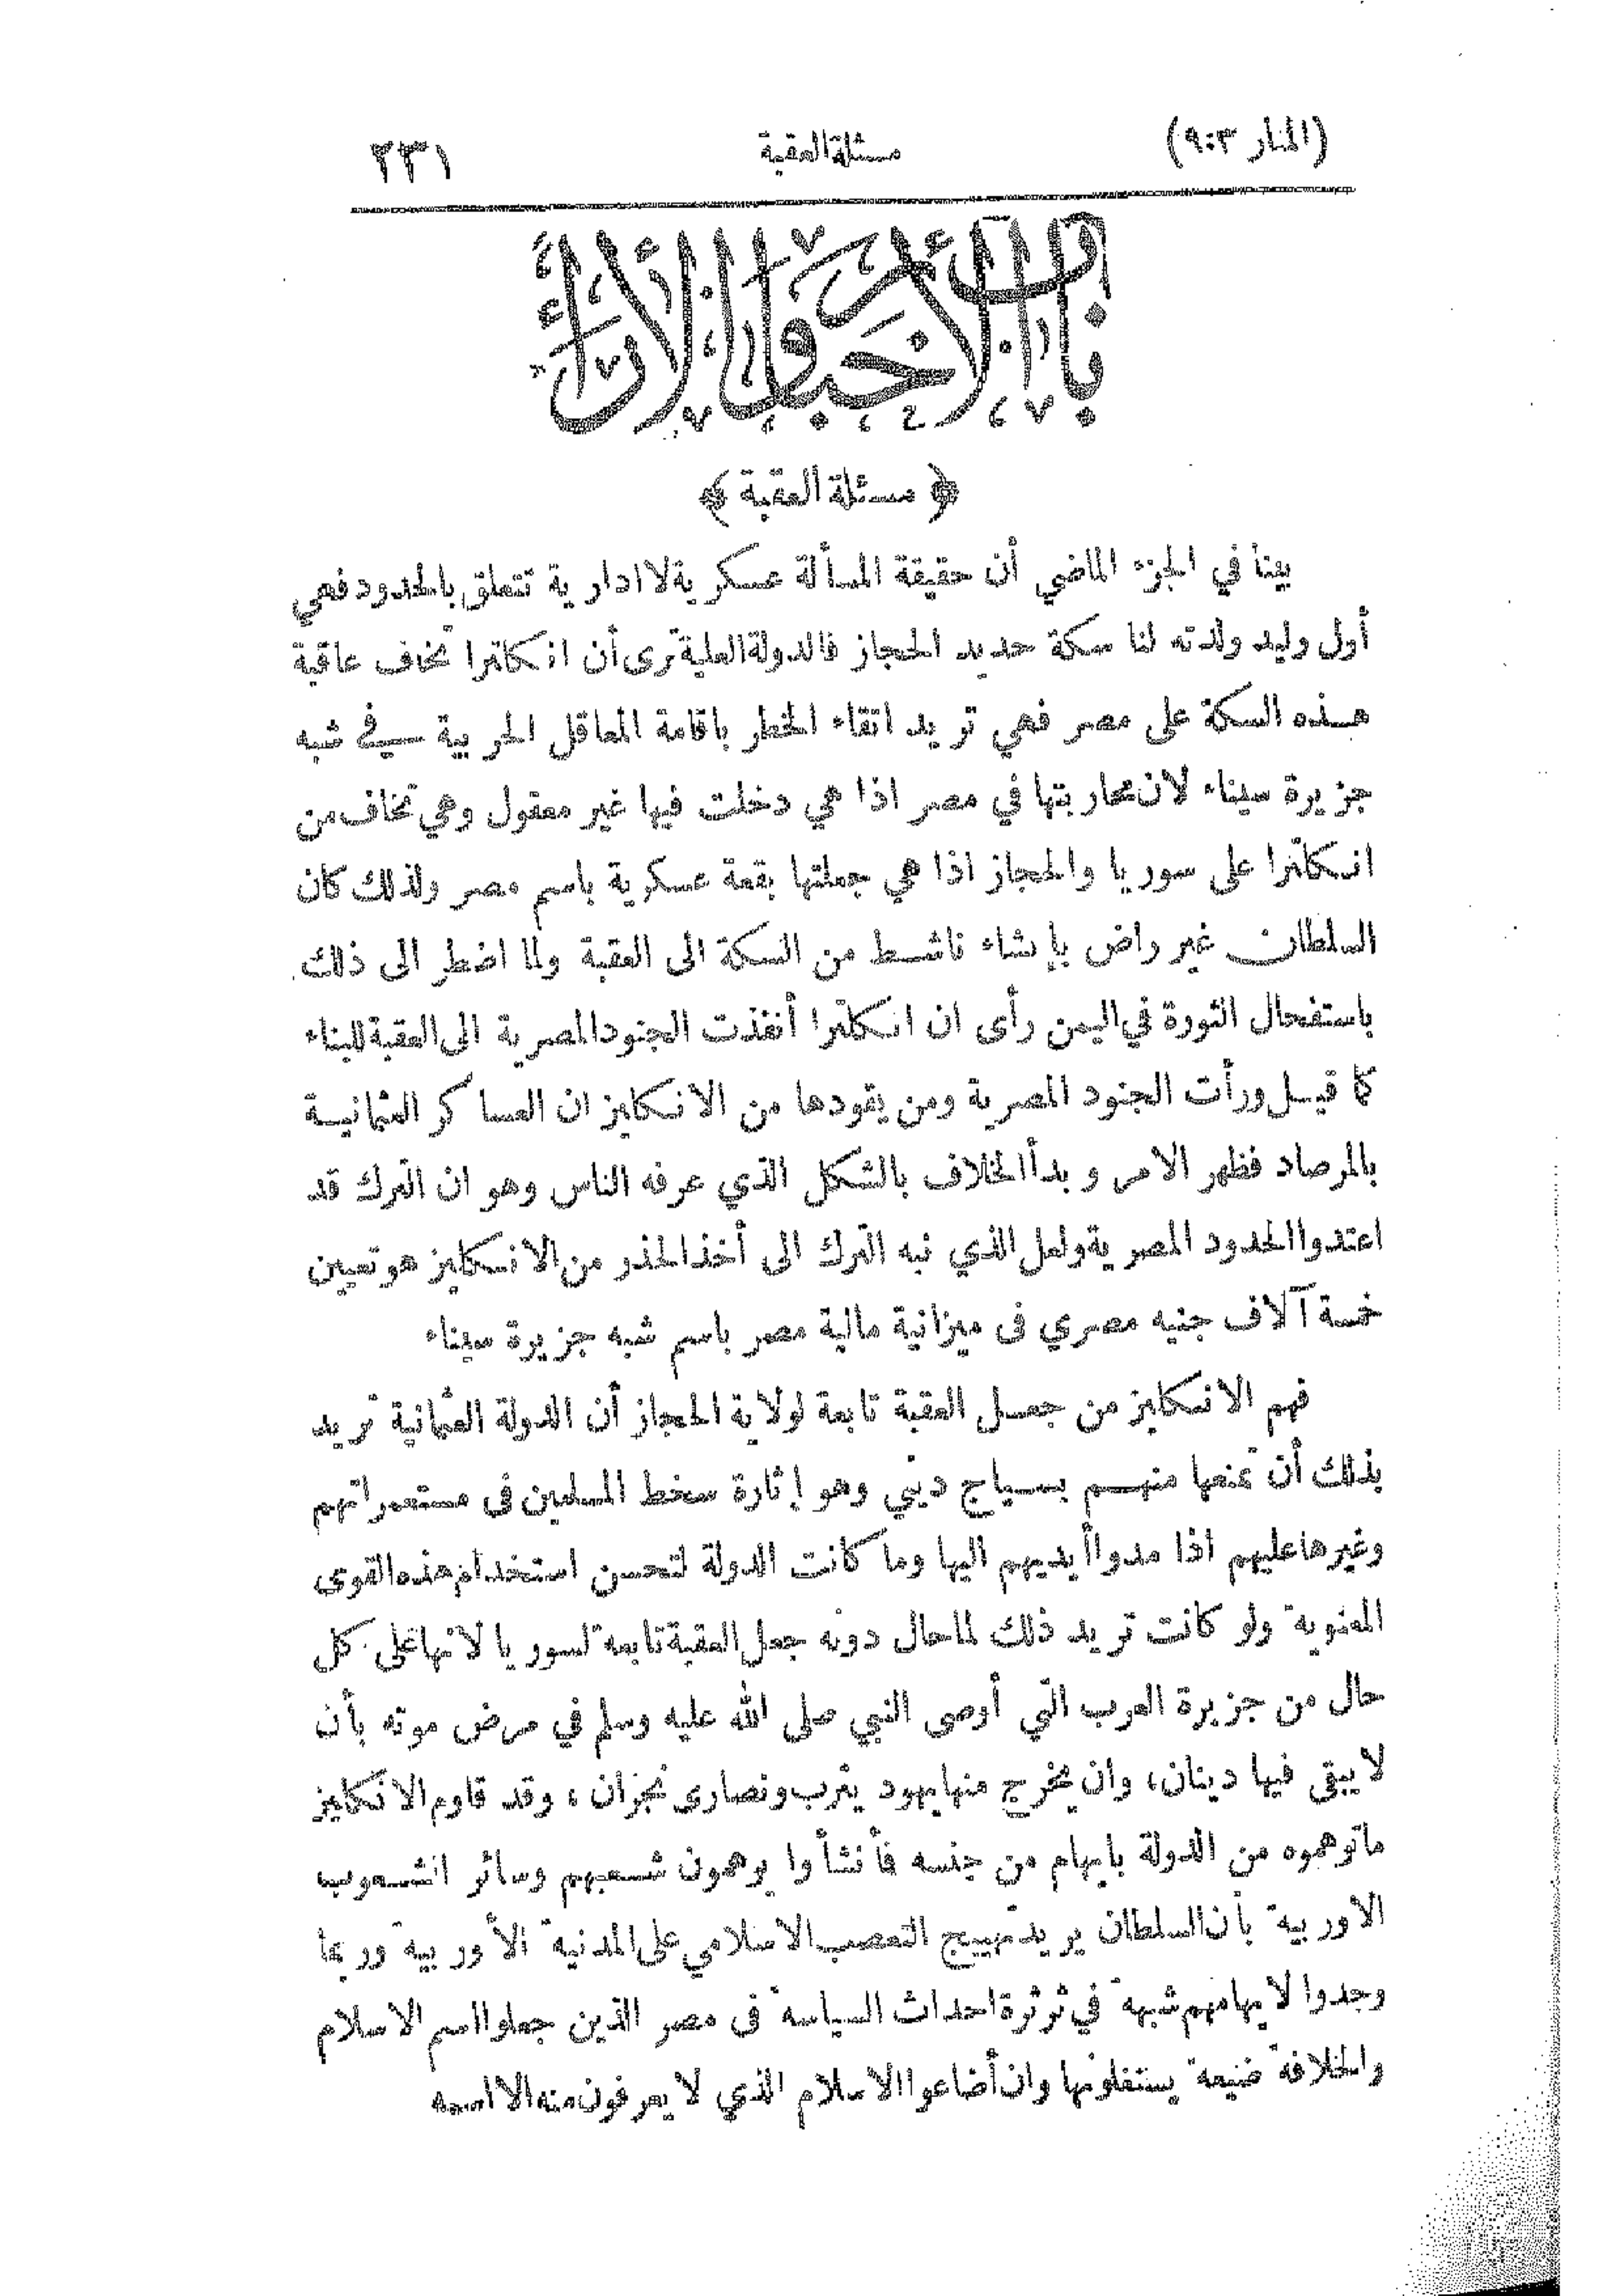 (المنار ٩:٣)
مسئلة العقبة
٢٣١
باب الأخبار والآراء
﴿ مسئلة العقبة ﴾
بينا في الجزء الماضي أن حقيقة المسألة عسكرية لا ادارية تتعلق بالحدود فهي
أول وليد ولدته لنا سكة حديد الحجاز فالدولة العلية ترى أن انكلترا تخاف عاقبة
هذه السكة على مصر فهي تريد اتقاء الخطر باقامة المعاقل الحربية في شبه
جزيرة سيناء لان محاربتها في مصر اذا هي دخلت فيها غير معقول وهي تخاف من
انكلترا على سوريا والحجاز اذا هي جعلتها بقعة عسكرية باسم مصر ولذلك كان
السلطان غير راض بإنشاء ناشط من السكة الى العقبة ولما اضطر الى ذلك
باستفحال الثورة في اليمن رأى ان انكلترا أنفذت الجنود المصرية الى العقبة للبناء
كما قيل ورأت الجنود المصرية ومن يقودها من الانكليز ان العساكر العثمانية
بالمرصاد فظهر الامر وبدأ الخلاف بالشكل الذي عرفه الناس وهو ان الترك قد
اعتدوا الحدود المصرية ولعل الذي نبه الترك الى أخذ الحذر من الانكليز هو تعيين
خمسة آلاف جنيه مصري فى ميزانية مالية مصر باسم شبه جزيرة سيناء
فهم الانكليز من جعل العقبة تابعة لولاية الحجاز أن الدولة العثمانية تريد
بذلك أن تمنعها منهم بسياج ديني وهو إثارة سخط المسلمين فى مستعمراتهم
وغيرها عليهم اذا مدوا أيديهم اليها وما كانت الدولة لتحسن استخدام هذه القوى
المعنوية ولو كانت تريد ذلك لما حال دونه جعل العقبة تابعة لسوريا لانها على كل
حال من جزيرة العرب التي أوصى النبي صلى الله عليه وسلم في مرض موته بأن
لا يبقى فيها دينان، وان يخرج منها يهود يثرب ونصارى نجران ، وقد قاوم الانكليز
ما توهموه من الدولة بايهام من جنسه فأنشأوا يوهمون شعبهم وسائر الشعوب
الاوربية بأن السلطان يريد تهييج التعصب الاسلامي على المدنية الأوربية وربما
وجدوا لايهامهم شبهة في ثرثرة احداث السياسة فى مصر الذين جعلوا اسم الاسلام
والخلافة ضيعة يستغلونها وان أضاعوا الاسلام الذي لا يعرفون منه الا اسمه